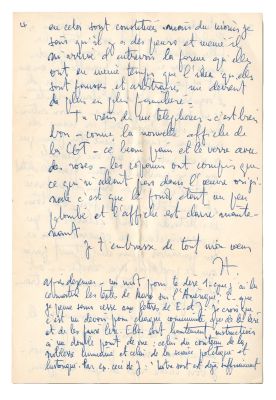 en celos sont constitués mais du moins je
sais qu'il y a des peurs et même il
m'arrive d'entrevoir la forme qu'elles
ont en même temps que l'idée qu'elles
sont fausses et arbitraires me devient
de plus en plus familière.
+ viens de me téléphoner - c'est très
bon - comme la nouvelle affiche de
la CGT - ce beau pain et le verre avec
des roses - les copains ont compris que
ce qui n'allait pas dans l'œuvre origi-
nale c'est que le fond était un peu
plombé et l'affiche est claire mainte-
nant
Je t'embrasse de tout mon cœur
H.
après déjeuner - un mot pour te dire 1 - que j'ai lu
les textes de Marx sur l'Amérique. 2 - que
je pense sans cesse aux lettres de E. et J. Je crois que
c'est un devoir pour chaque communiste que de les lire
et de les faire lire. Elles sont hautement instructives
à un double point de vue : celui du contenu de la
noblesse humaine et celui de la morale politique et
historique. Par ex. ceci de J : notre sort est déjà